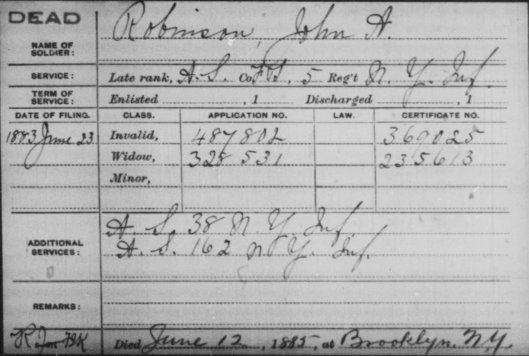 DEAD
NAME OF SOLDIER: Robinson, John A.
SERVICE: Late rank, A. S. Co. F&S, 5 Reg't N. Y. Inf.
TERM OF SERVICE: Enlisted , 1 Discharged , 1
DATE OF FILING. CLASS. APPLICATION NO. LAW. CERTIFICATE NO.
1883 June 23 Invalid, 487802 369025
Widow, 328531 235613
Minor,
ADDITIONAL SERVICES: A. S. 38 N. Y. Inf.
A. S. 162 N. Y. Inf.
REMARKS:
Died June 12, 1885, at Brooklyn. N.Y.